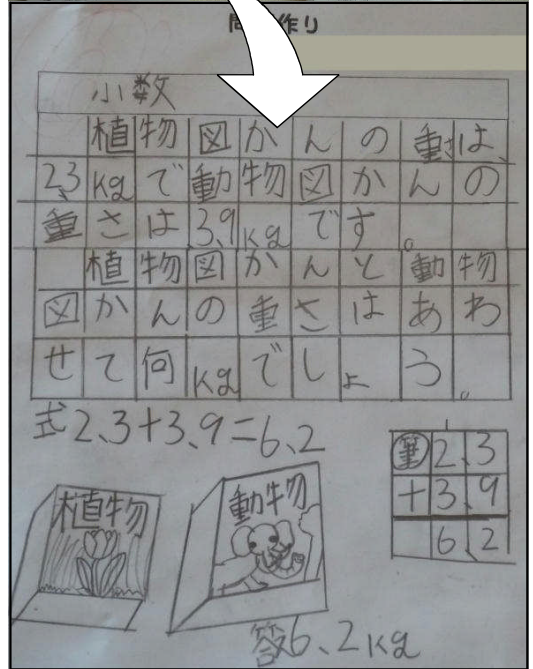 作り
小数
植物図かんの重さは、
2.3kgで動物図かんの
重さは3.9kgです。
植物図かんと動物
図かんの重さはあわ
せて何kgでしょう。
式2.3+3.9=6.2
筆2.3
+3.9
6.2
植物
動物
答6.2kg